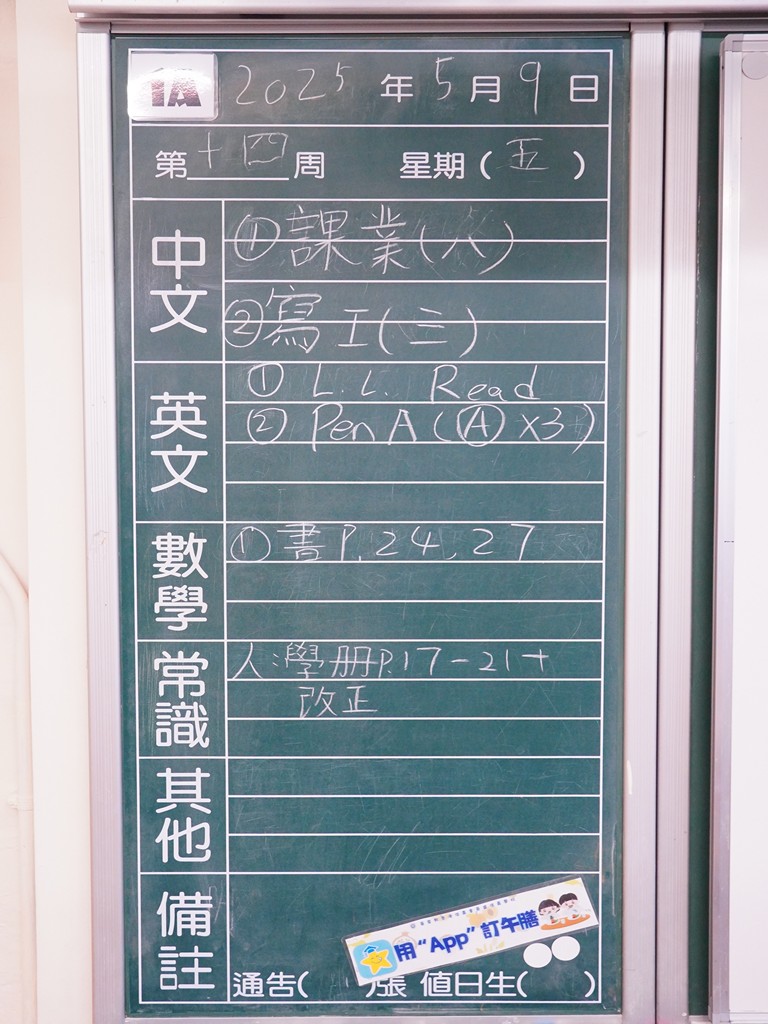 1A 2025 年 5 月 9 日
第十四周 星期(五)
中文
①課業(八)
②寫工(三)
英文
① L.L. Read
② Pen A (Ⓐ x3)
數學
①書P.24,27
常識
人:學册P.17-21+
改正
其他
備註
用“App”訂午膳
通告( )張 值日生( )